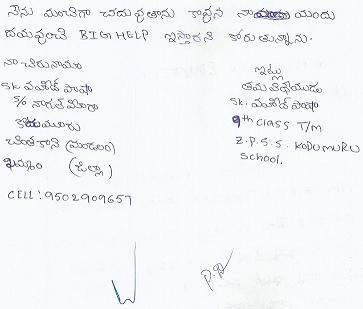 నేను మంచిగా చదువుతాను కావున నా యందు
దయవుంచి BIG HELP ఇస్తారని కోరుతున్నాను.
నా చిరునామా
SK. వహీద్ పాషా
S/o నాగుల్ మీరా
కొదుమూరు
చింతకాని (మండలం)
ఖమ్మం (జిల్లా)
CELL: 9502909657
ఇట్లు
తమ విధేయుడు
SK. వహీద్ పాషా
9th class T/M
Z.P.S.S. KODUMURU
School.